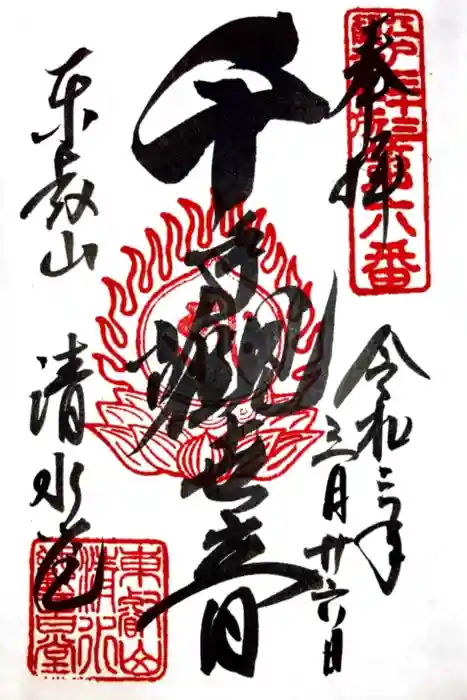 奉拝
第六番
令和三年
三月廿六日
千手観世音
東叡山
清水堂
東叡山
清水
觀音堂